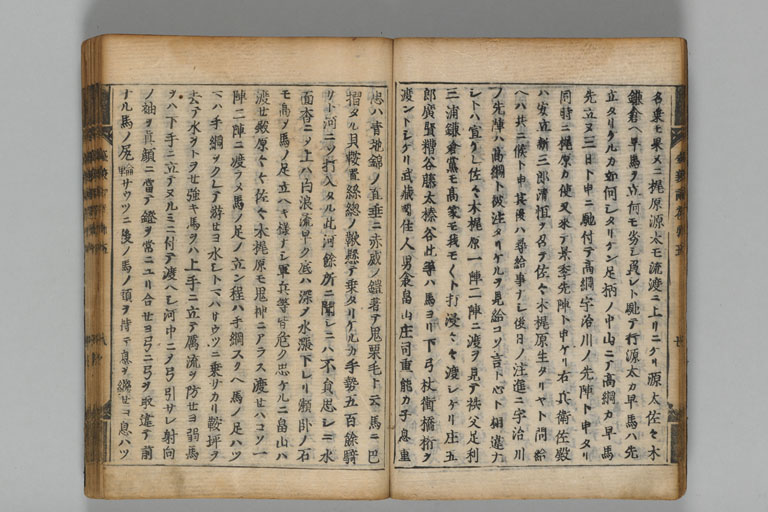 名乗モ果メニ梶原源太モ流渡ニ上リニケリ源太佐々木
鎌倉ヘ早馬ヲ立何モ劣シ負レト馳テ行源太カ早馬ハ先
立タリケルカ如何シタリケン足柄ノ中山ニテ高綱カ早馬
先立ヌ三日ト申ニ馳付テ高綱宇治川ノ先陣ト申タリ
同時ニ梶原カ使又来テ景季先陣ト申ケリ右兵衛佐殿
ハ安立新三郎清恒ヲ召テ佐々木梶原生タリヤト問給
ヘハ共ニ候ト申其後ハ尋給事ナシ後日ノ注進ニ宇治川
ノ先陣ハ高綱ト被注タリケルヲ見給コソ言ト心ト相違ナ
レトハ宣ケレ佐々木梶原一陣二陣ニ渡ヲ見テ秩父足利
三浦鎌倉党モ高家モ我モ〱ト打浸々々渡シケリ庄五
郎廣賢糟谷藤太榛谷此等ハ馬ヨリ下弓杖衝橋桁ヲ
渡ントシケリ武蔵国住人男衾畠山庄司重能カ子息重
忠ハ青地錦ノ直垂ニ赤威ノ鎧著テ鬼栗毛ト云馬ニ巴
摺タル貝鞍置絲総ノ鞦懸テ乗タリケルカ手勢五百餘騎
サト河ニソ打入タル此河餘所ニ聞シニハ不負思シニ水
面杳ニメ上ハ白浪流早ク底ハ深メ水漲下レリ瀬臥ノ石
モ高メ馬ノ足立ヘキ様ナシ軍兵等皆危ク思ケルニ畠山ハ
渡セ殿原々々佐々木梶原モ鬼神ニアラス渡セハコソ一
陣二陣ニ渡ラメ馬ノ足ノ立ン程ハ手綱スクヘ馬ノ足ハツ
ハ手綱ヲクレテ游セヨ水シトハサウツニ乗サカリ鞍坪ヲ
去テ水ヲトヲセ強キ馬ヲハ上手ニ立テ属流ヲ防セヨ弱馬
ヲハ下手ニ立テヌルミニ付テ渡ヘシ河中ニメ弓引サレ射向
ノ袖ヲ真額ニ當テ鎧ヲ常ニユリ合セヨ弓ニ弓ヲ取違テ前
ナル馬ノ尾輪サウツニ後ノ馬ノ頭ヲ持テ息ヲ継セヨ息ハツ